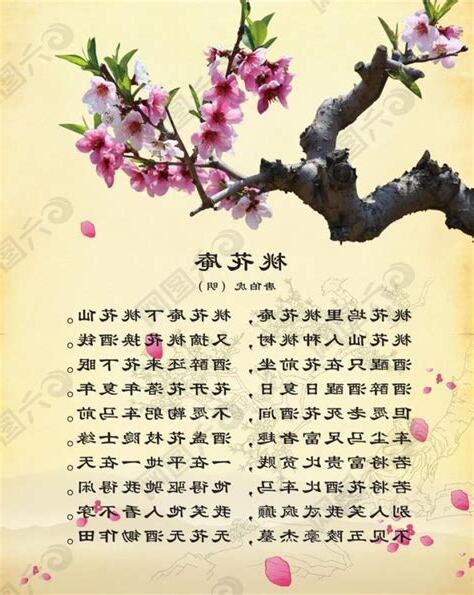 桃花庵
唐伯虎(明)
桃花坞里桃花庵,桃花庵下桃花仙。
桃花仙人种桃树,又摘桃花换酒钱。
酒醒只在花前坐,酒醉还来花下眠。
酒醉酒醒日复日,花开花落年复年。
但愿老死花酒间,不愿鞠躬车马前。
车尘马足富者趣,酒盏花枝隐士缘。
若将富贵比贫贱,一在平地一在天。
若将花酒比车马,他得驱驰我得闲。
别人笑我忒疯癫,我笑他人看不穿。
不见五陵豪杰墓,无花无酒锄作田。